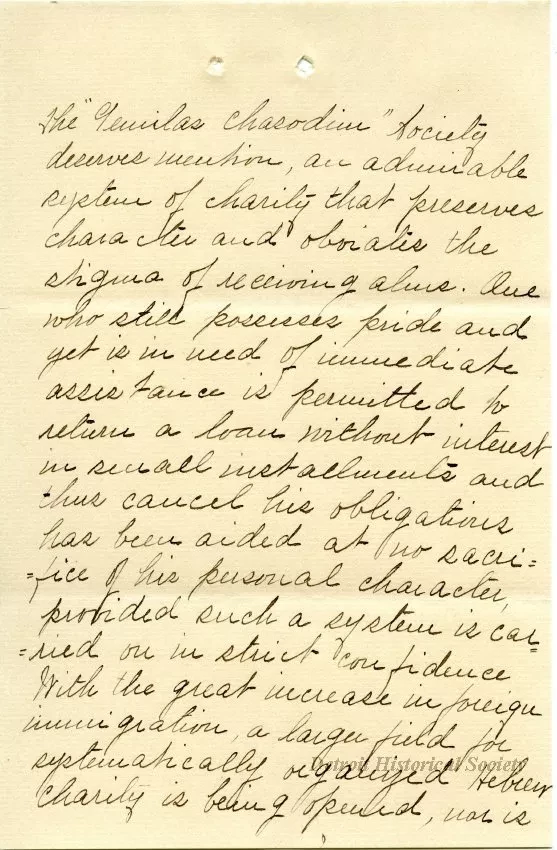 The "Gemilas Chasodim" Society
deserves mention, an admirable
system of charity that preserves
character and obviates the
stigma of receiving alms. One
who still possesses pride and
yet is in need of immediate
assistance is permitted to
return a loan without interest
in small installments and
thus cancel his obligations
has been aided at no sacri=
=fice of his personal character,
provided such a system is car=
=ried on in strict confidence
With the great increase in foreign
immigration, a larger field for
systematically organized Hebrew
Detroit Historical Society
charity is being opened, nor is